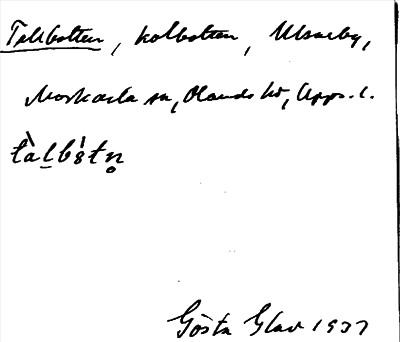 Tallbotten, kolbotten, Ulvsarby,
Morkarla sn, Olands hd, Upps. l.
tàl̠bòtn̥
Gösta Glav 1937